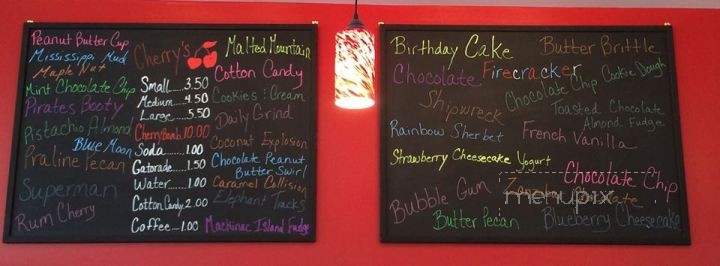 Peanut Butter Cup
Mississippi Mud
Maple Nut
Mint Chocolate Chip
Pirates Booty
Pistachio Almond
Blue Moon
Praline Pecan
Superman
Rum Cherry
Cherry's
Small.....3.50
Medium....4.50
Large.....5.50
CherryBomb.10.00
Soda........1.00
Gatorade...1.50
Water......1.00
Cotton Candy..2.00
Coffee...1.00
Malted Mountain
Cotton Candy
Cookies & Cream
Daily Grind
Coconut Explosion
Chocolate Peanut
Butter Swirl
Caramel Collision
Elephant Tracks
Mackinac Island Fudge
Birthday Cake
Butter Brittle
Chocolate Firecracker
Chocolate Chip Cookie Dough
Shipwreck
Toasted Chocolate
Almond Fudge
Rainbow Sherbet
French Vanilla
Strawberry Cheesecake Yogurt
Chocolate Chip
Bubble Gum
menupix
Butter Pecan
Blueberry Cheesecake